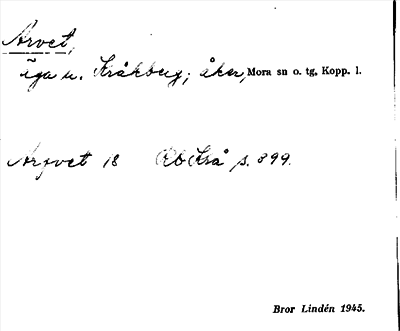 Arvet,
äga u. Kråkberg; åker, Mora sn o. tg, Kopp. l.
Arfvet 18 Rb Krå s. 899.
Bror Lindén 1945.